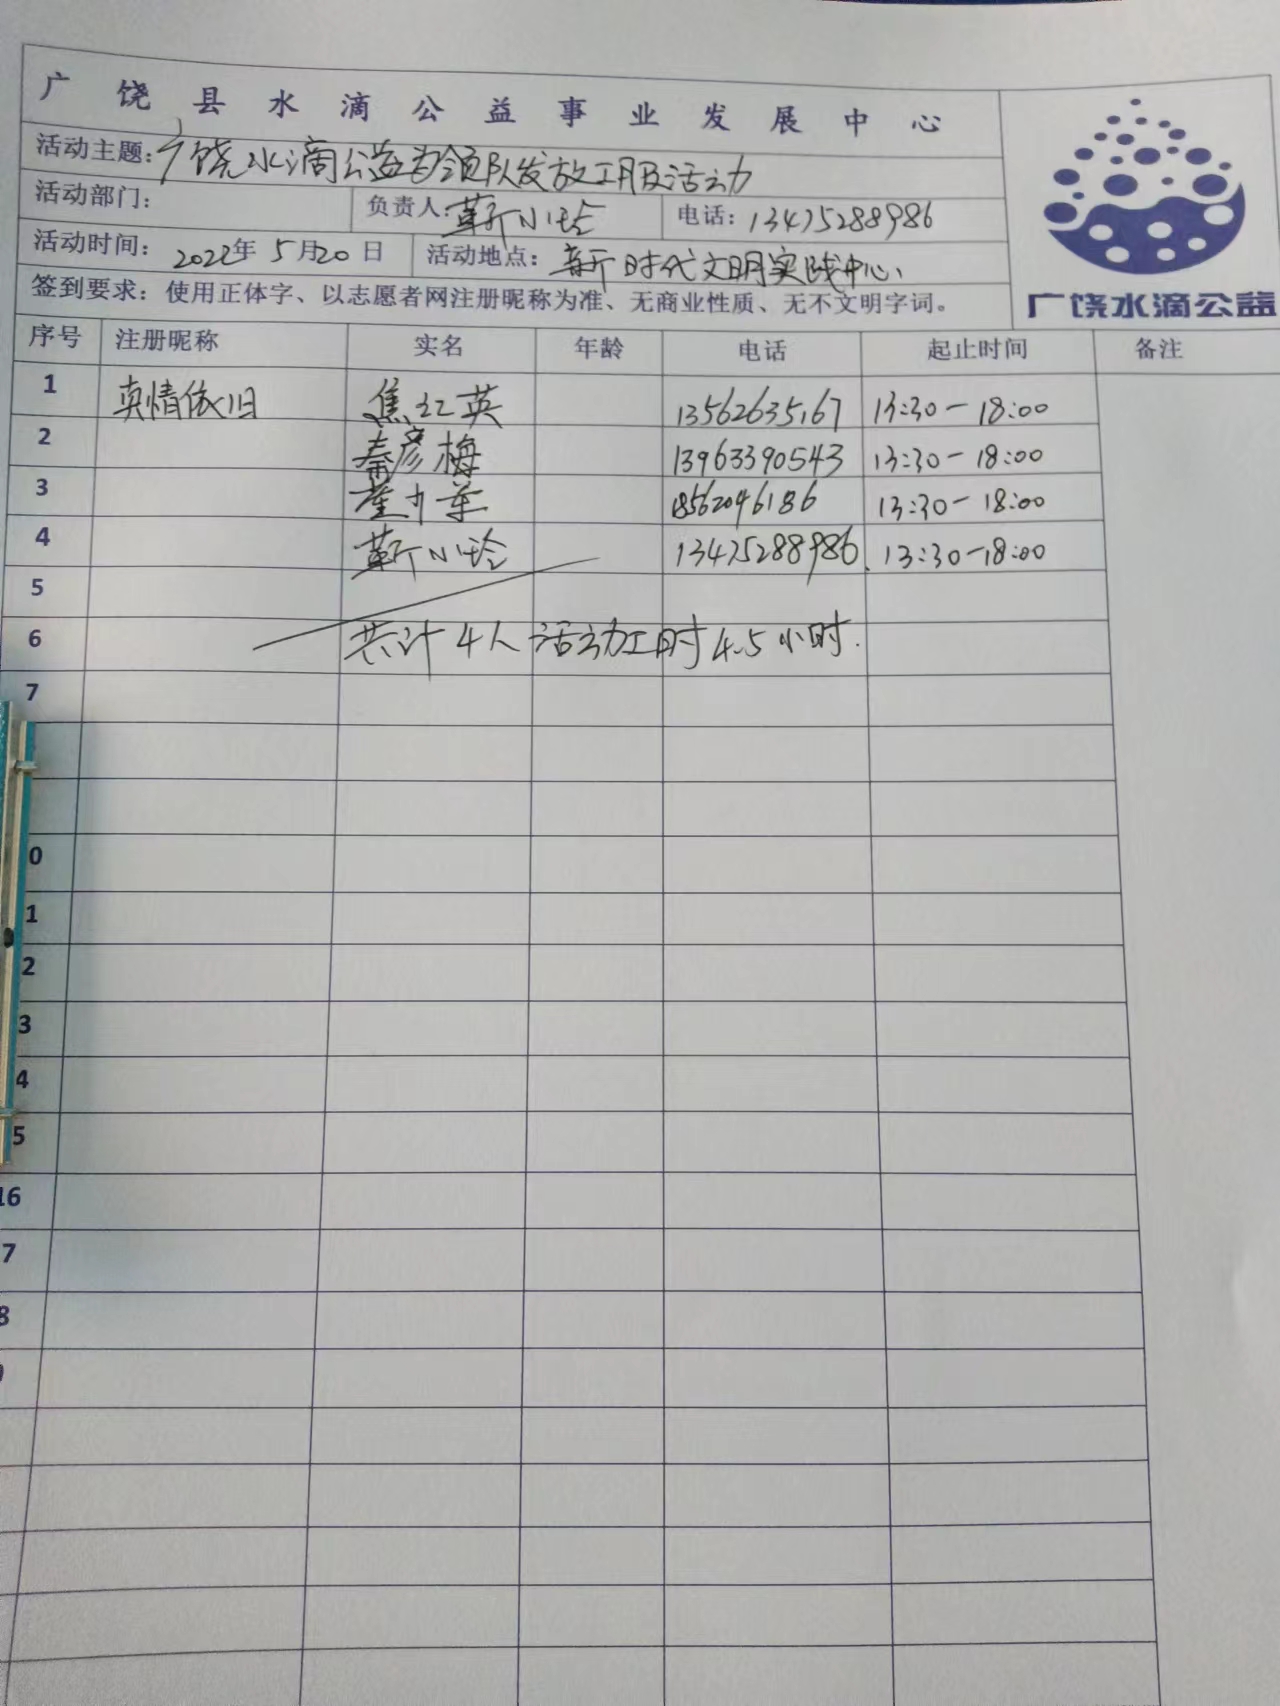 广饶县水滴公益事业发展中心
活动主题:广饶水滴公益为领队发放工服及活动
活动部门: 负责人: 靳小玲 电话: 13475288986
活动时间: 2022年 5月20日 活动地点: 新时代文明实践中心
签到要求: 使用正体字、以志愿者网注册昵称为准、无商业性质、无不文明字词。
广饶水滴公益
序号 注册昵称 实名 年龄 电话 起止时间 备注
1 真情依旧 焦红英 13562635167 13:30-18:00
2 秦彦梅 13963390543 13:30-18:00
3 崔 18562046186 13:30-18:00
4 靳小玲 13475288986 13:30-18:00
5
6 共计4人 活动工时4.5小时.
7
0
1
2
3
4
5
16
7
8